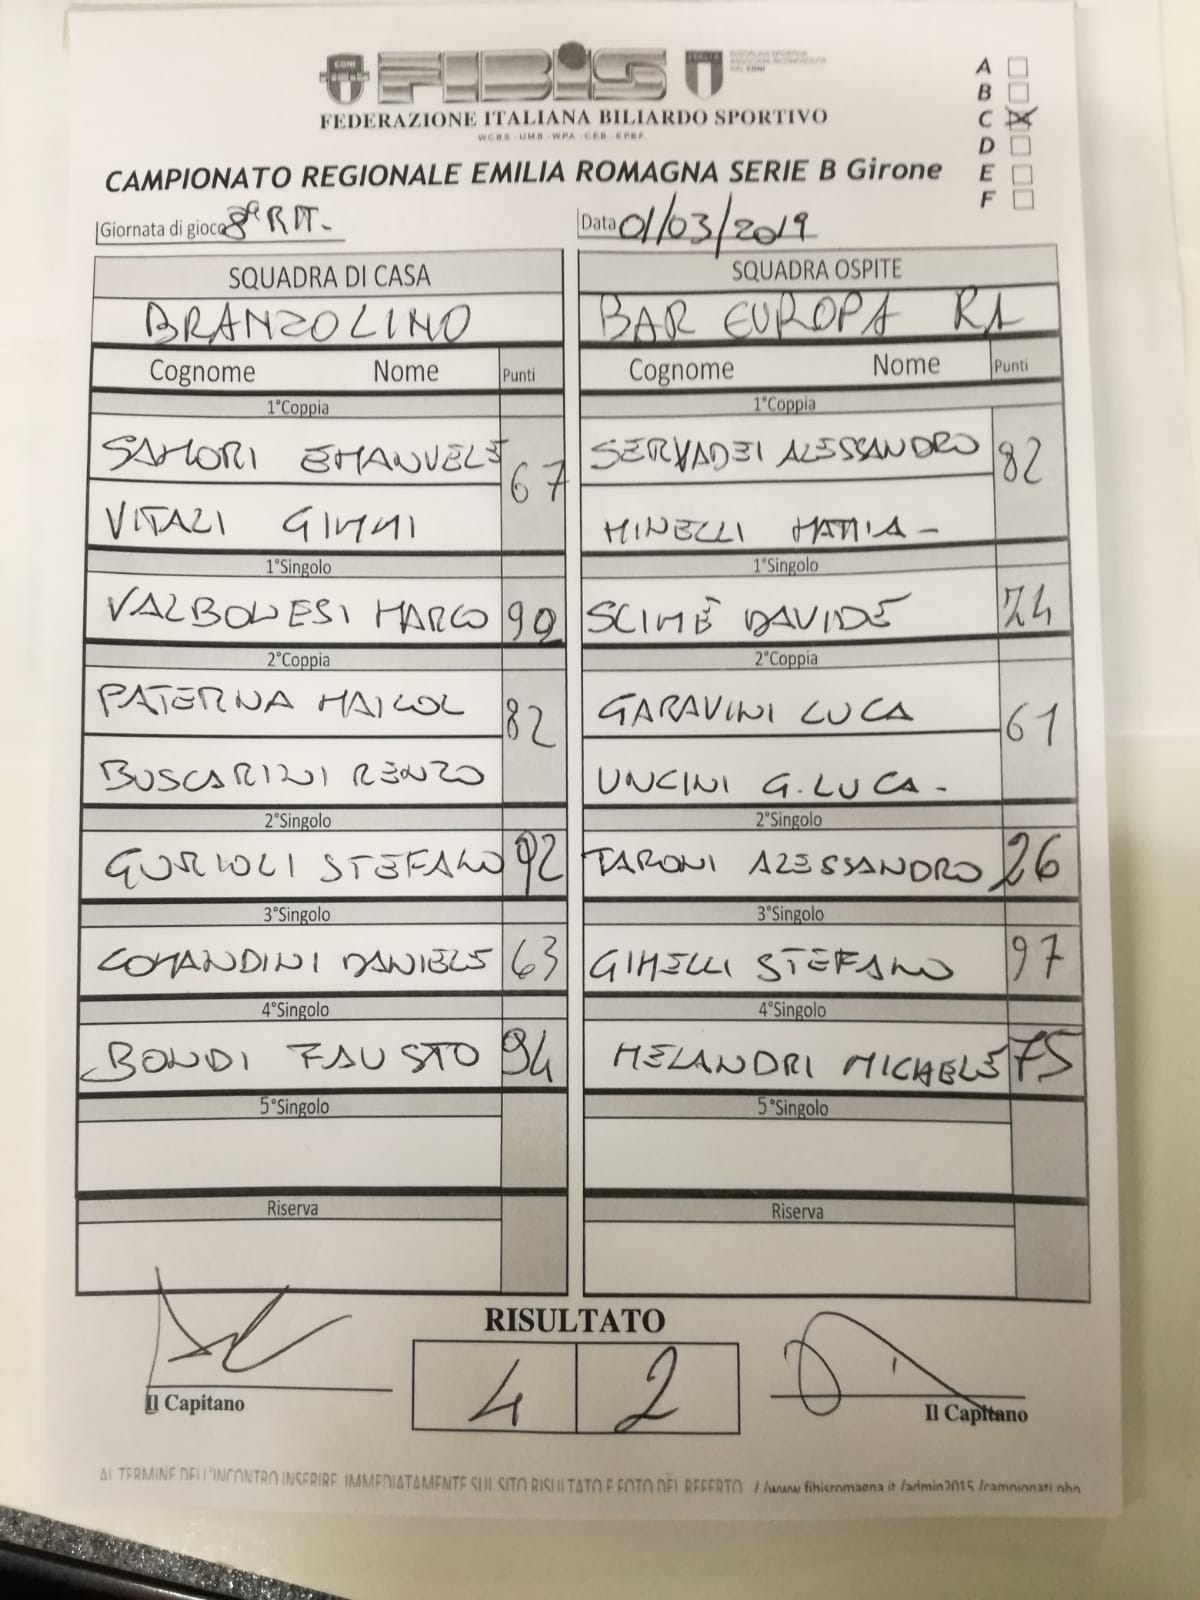 CONI FIBIS ITALIA
FEDERAZIONE ITALIANA BILIARDO SPORTIVO
W.C.B.S - U.M.B - W.P.A - C.E.B - E.P.B.F.
A
B
C
D
E
F
CAMPIONATO REGIONALE EMILIA ROMAGNA SERIE B Girone
Giornata di gioco 8ª RIT. Data 01/03/2019
SQUADRA DI CASA SQUADRA OSPITE
BRANZOLINO BAR EUROPA RA
Cognome Nome Punti Cognome Nome Punti
1°Coppia 1°Coppia
SAMORI EMANUELE 67 SERVADEI ALESSANDRO 82
VITALI GIMMI MINELLI MATTIA -
1°Singolo 1°Singolo
VALBONESI MARCO 90 SCIMÈ DAVIDE 74
2°Coppia 2°Coppia
PATERNA MAICOL 82 GARAVINI LUCA 61
BUSCARINI RENZO UNCINI G.LUCA -
2°Singolo 2°Singolo
GURIOLI STEFANO 92 TARONI ALESSANDRO 26
3°Singolo 3°Singolo
COMANDINI DANIELE 63 GIMELLI STEFANO 97
4°Singolo 4°Singolo
BONDI FAUSTO 94 MELANDRI MICHELE 75
5°Singolo 5°Singolo
Riserva Riserva
RISULTATO
4 2
Il Capitano Il Capitano
AL TERMINE DELL'INCONTRO INSERIRE IMMEDIATAMENTE SUL SITO RISULTATO E FOTO DEL REFERTO //www.fibisromagna.it/admin2015/campionati.php